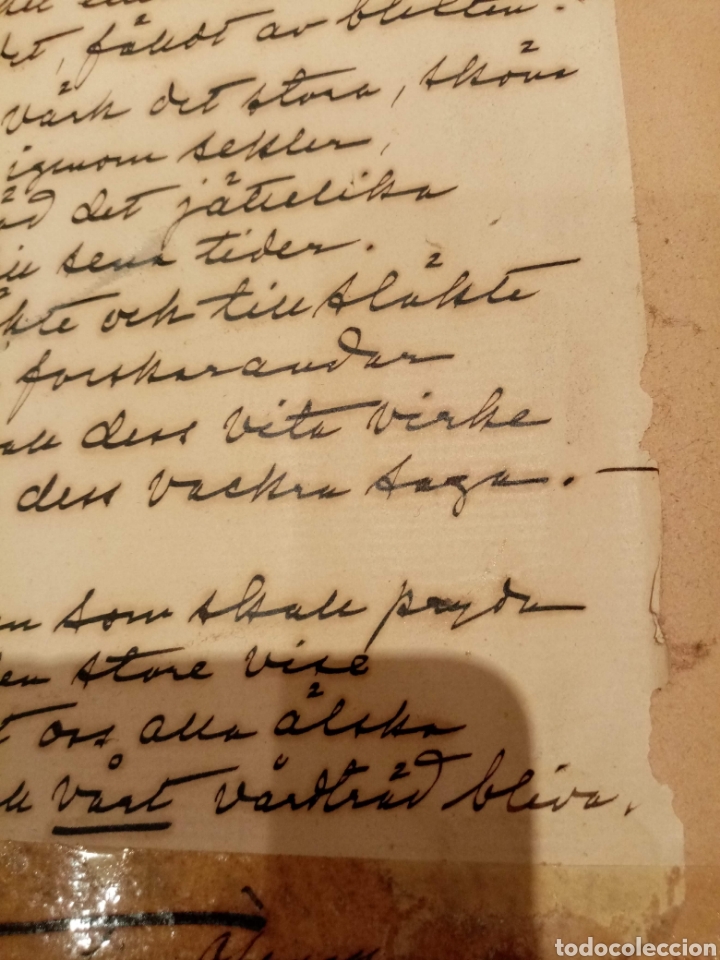 det, fälldt av blixten.
värk det stora, sköna
igenom sekler,
det jättelika
sena tider.
och till släkte
forskarandar
dess vita virke
dess vackra saga. —
som skall pryda
store vise
oss alla älska
vårt vårdträd bliva,
todocoleccion